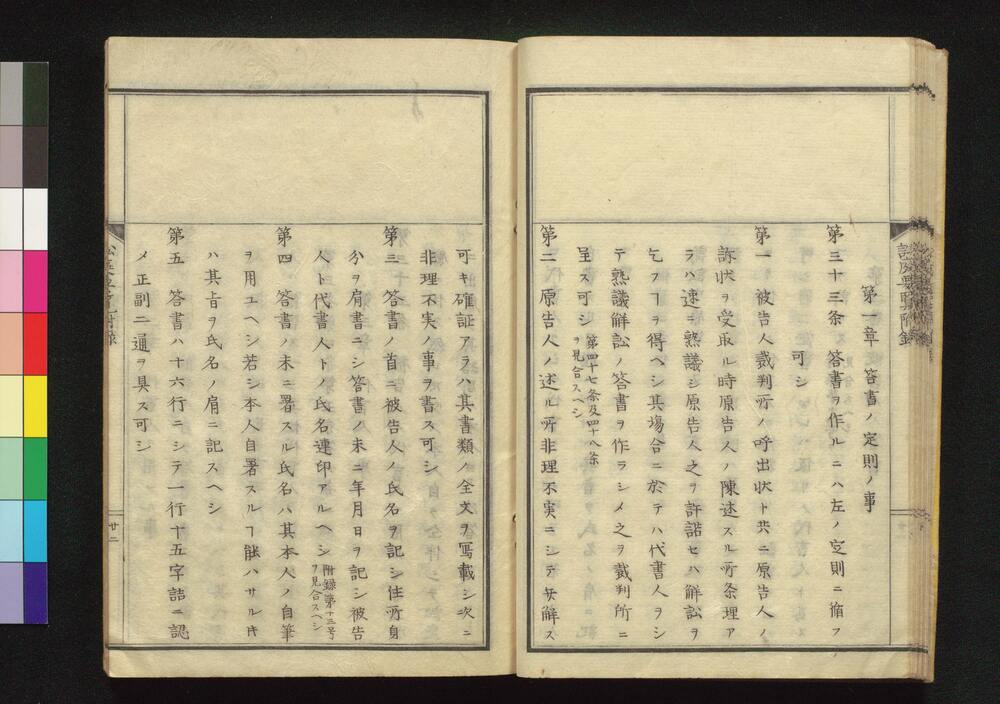 第一章 答書ノ定則ノ事
第三十三条 答書ヲ作ルニハ左ノ定則ニ循フ
可シ
第一 被告人裁判所ノ呼出状ト共ニ原告人ノ
訴状ヲ受取ル時原告人ノ陳述スル所条理ア
ラハ速ニ熟議シ原告人之ヲ許諾セハ解訟ヲ
乞フヿヲ得ヘシ其場合ニ於テハ代書人ヲシ
テ熟議解訟ノ答書ヲ作ラシメ之ヲ裁判所ニ
呈ス可シ 第四十七条及四十八条
ヲ見合スヘシ
第二 原告人ノ述ル所非理不実ニシテ弁解ス
可キ確証アラハ其書類ノ全文ヲ写載シ次ニ
非理不実ノ事ヲ書ス可シ
第三 答書ノ首ニ被告人ノ氏名ヲ記シ住所身
分ヲ肩書ニシ答書ノ末ニ年月日ヲ記シ被告
人ト代書人トノ氏名連印アルヘシ 附録第十三号
ヲ見合スヘシ
第四 答書ノ末ニ署スル氏名ハ其本人ノ自筆
ヲ用エヘシ若シ本人自署スルヿ能ハサル片
ハ其旨ヲ氏名ノ肩ニ記スヘシ
第五 答書ハ十六行ニシテ一行十五字詰ニ認
メ正副二通ヲ具ス可シ
廿二